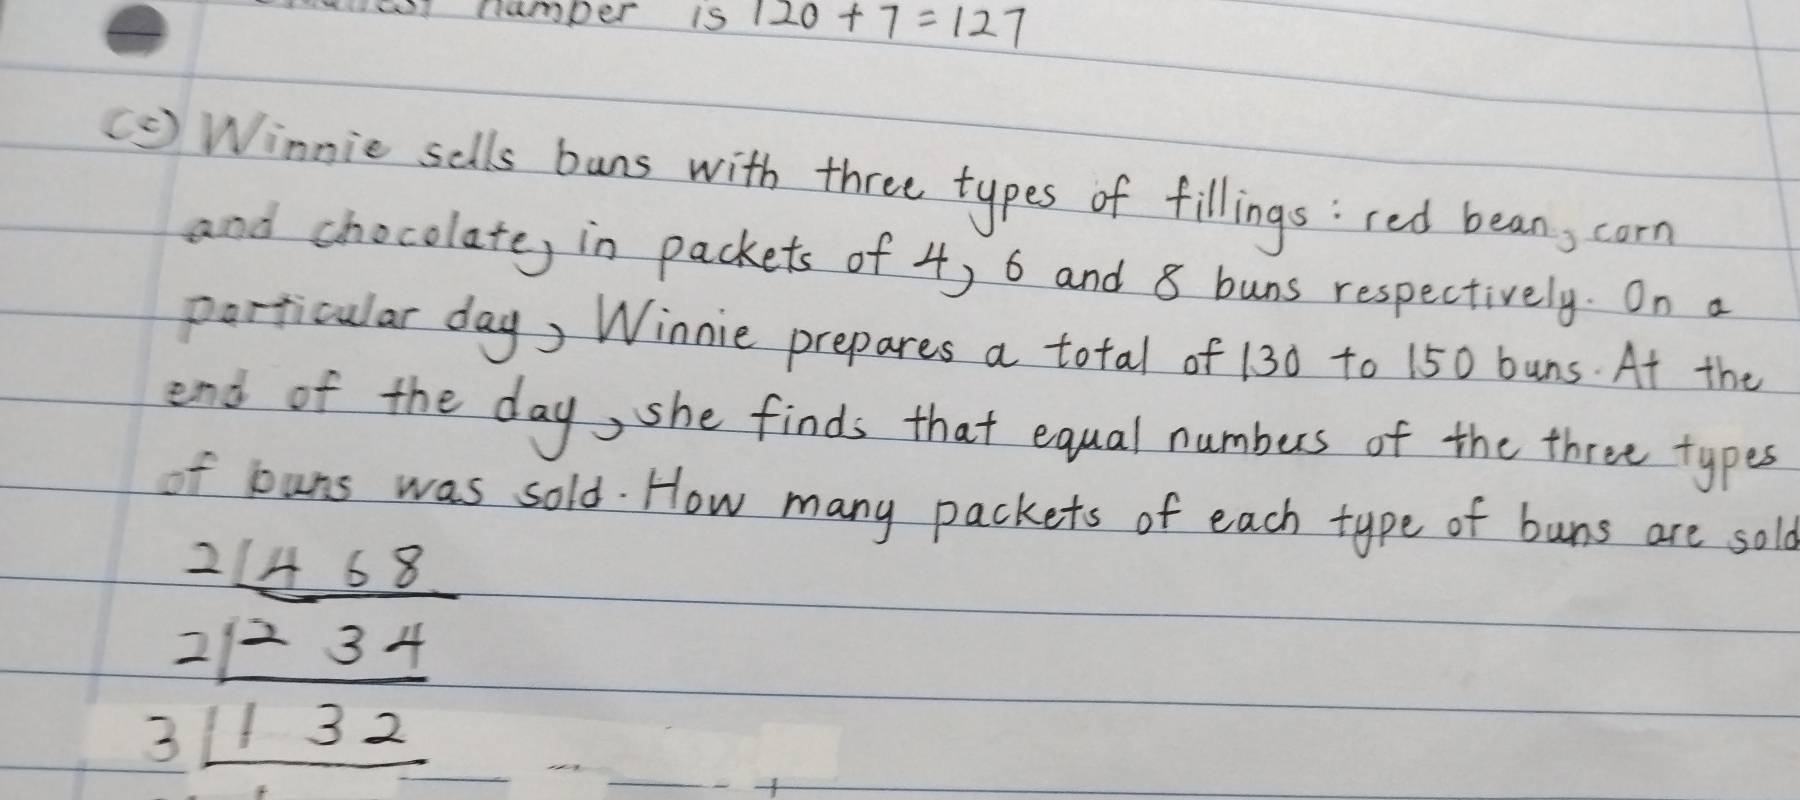 number is 120 + 7 = 127
(c) Winnie sells buns with three types of fillings: red bean, corn
and chocolate, in packets of 4, 6 and 8 buns respectively. On a
particular day, Winnie prepares a total of 130 to 150 buns. At the
end of the day, she finds that equal numbers of the three types
of buns was sold. How many packets of each type of buns are sold
2 | 4 6 8
2 | 2 3 4
3 | 1 3 2